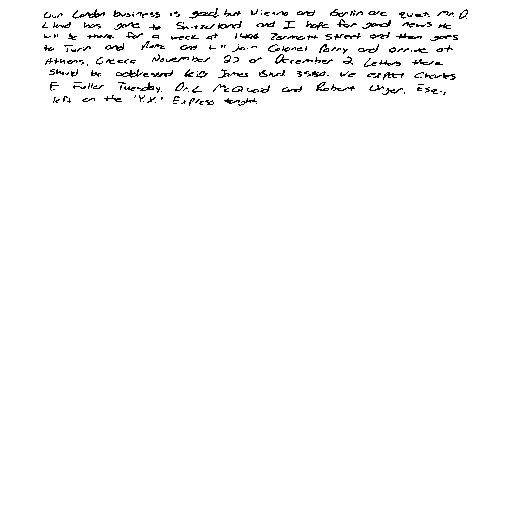 Our London business is good, but Vienna and Berlin are quiet. Mr. D.
Lloyd has gone to Switzerland and I hope for good news. He
will be there for a week at 1496 Zermott Street and then goes
to Turin and Rome and will join Colonel Parry and arrive at
Athens, Greece November 27 or December 2. Letters there
should be addressed King James Blvd 3580. We expect Charles
E. Fuller Tuesday. Dr. L. McQuaid and Robert Unger, Esq.,
left on the "Y.X." Express tonight.